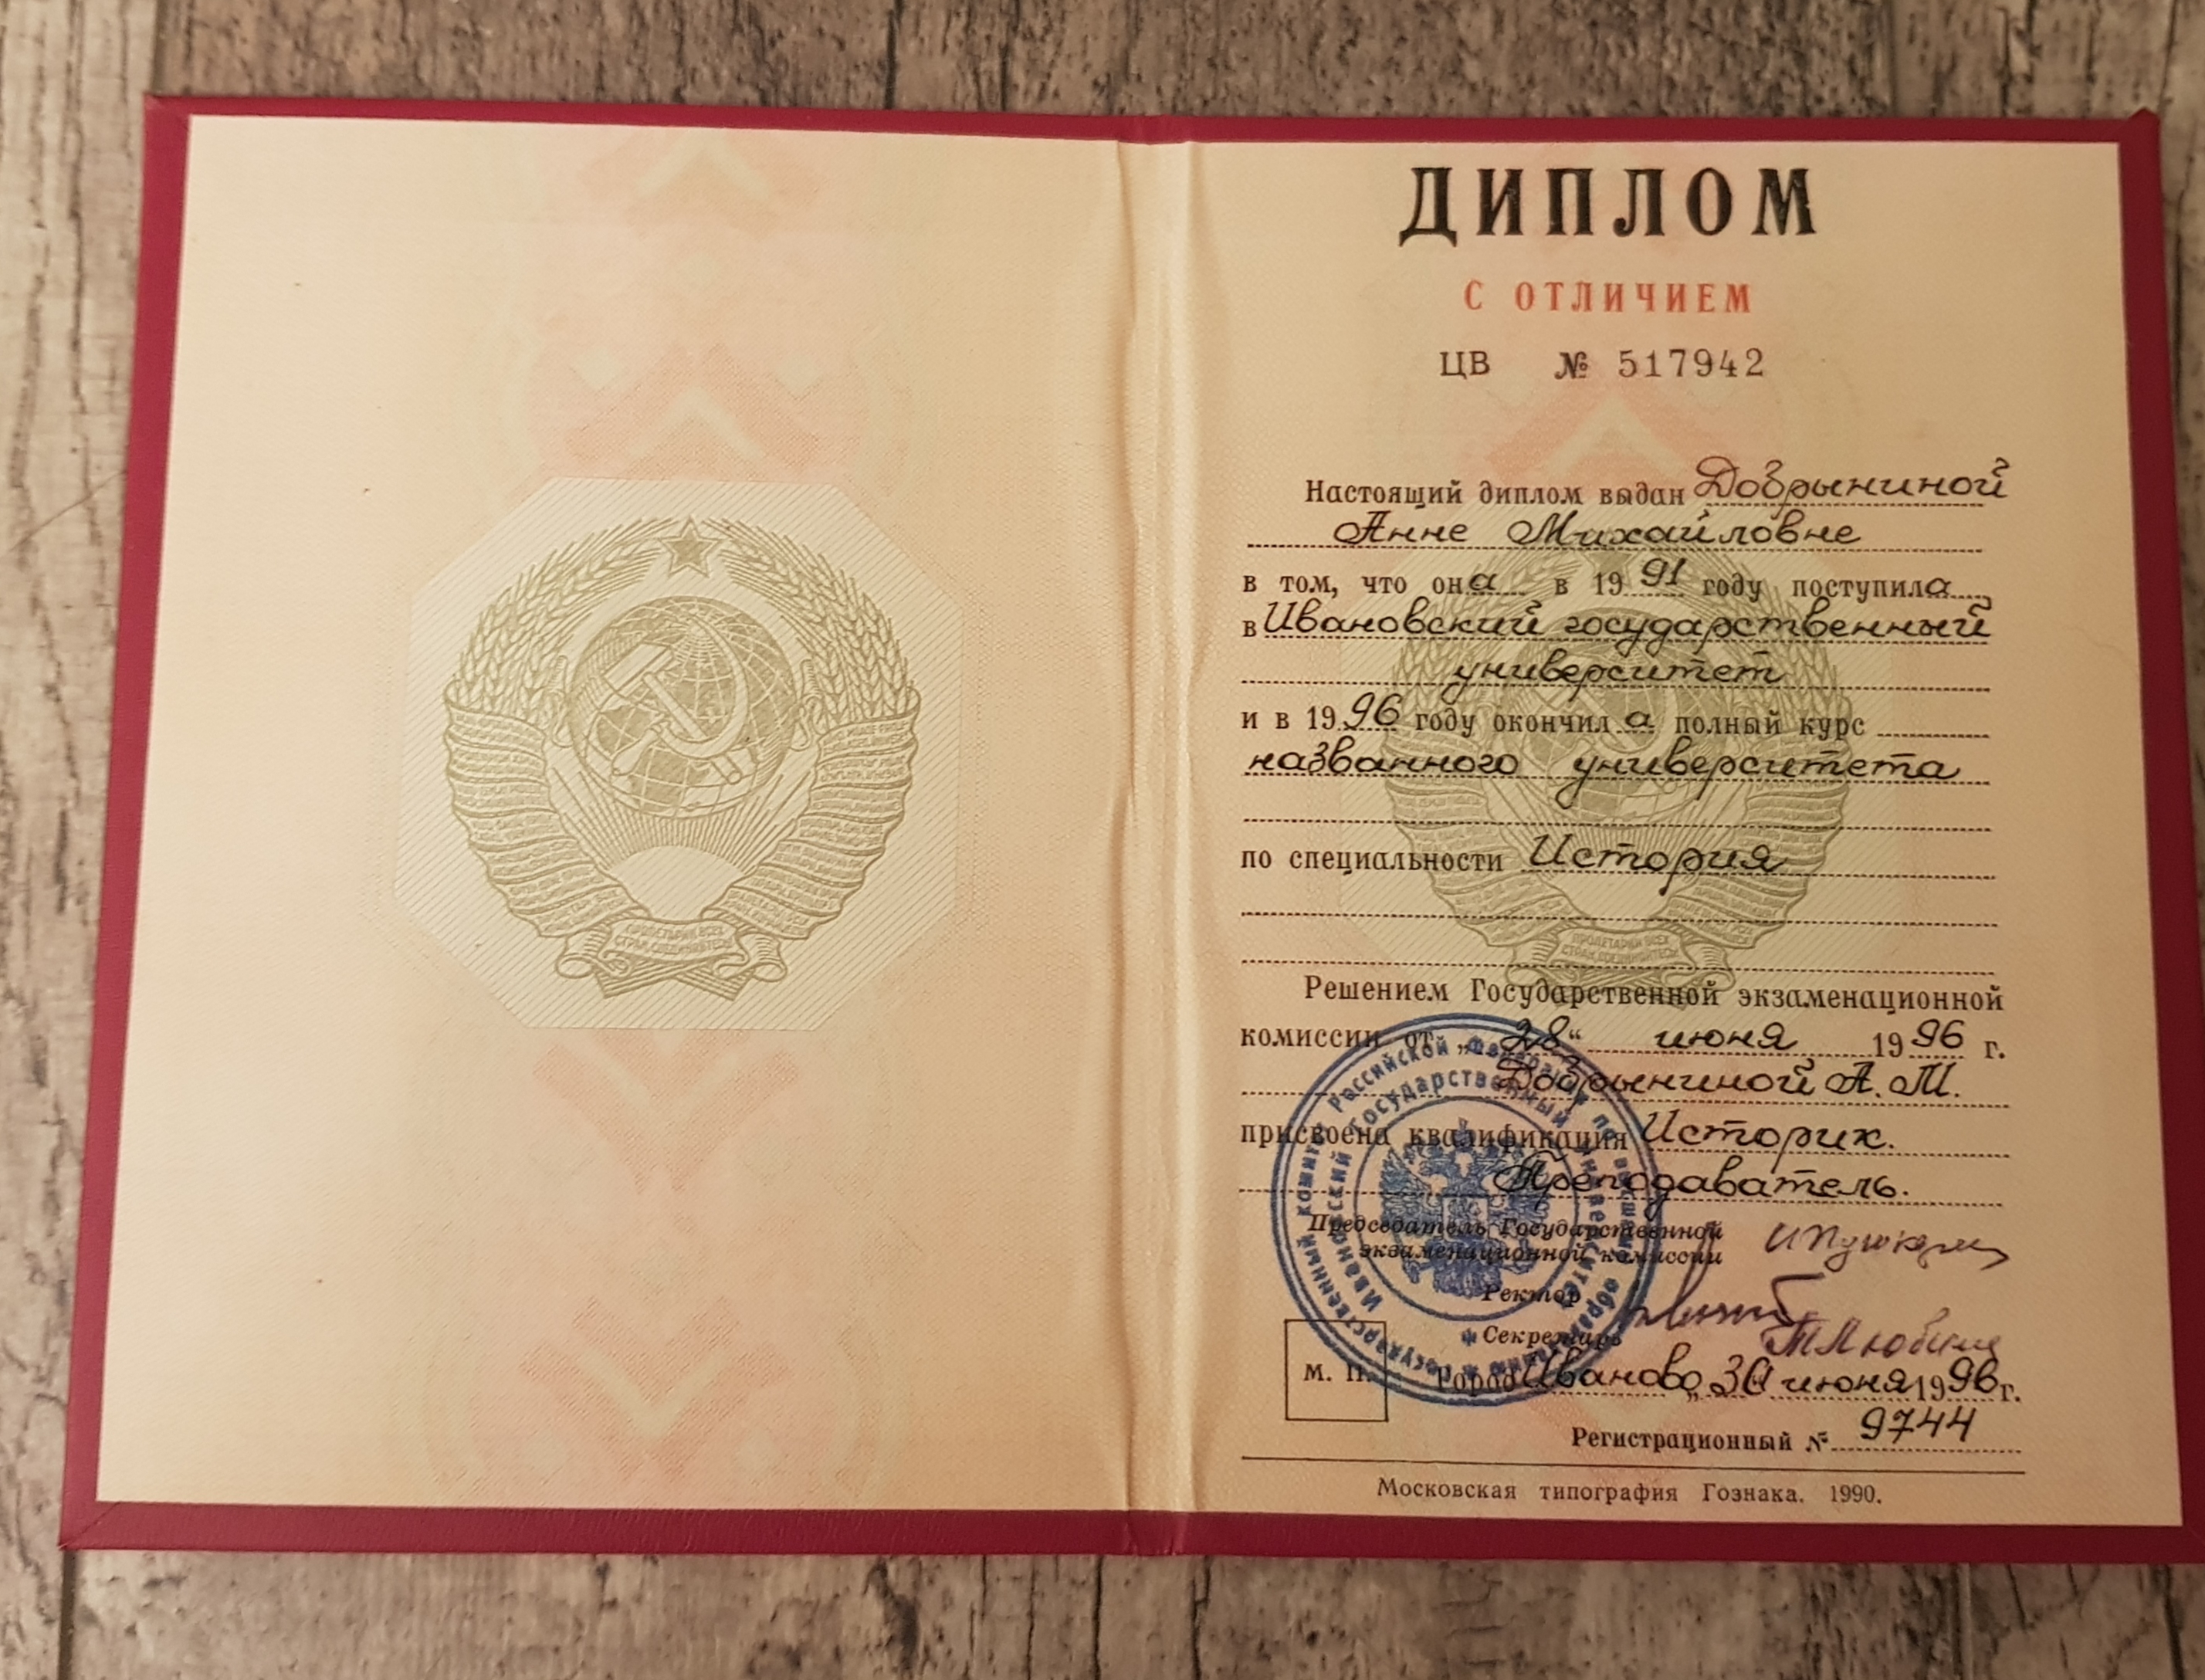 ПРОЛЕТАРИИ ВСЕХ
СТРАН, СОЕДИНЯЙТЕСЬ!
ДИПЛОМ
С ОТЛИЧИЕМ
ЦВ № 517942
Настоящий диплом выдан Добрыниной
Анне Михайловне
в том, что она в 1991 году поступила
в Ивановский государственный
университет
и в 1996 году окончила полный курс
названного университета
по специальности История
Решением Государственной экзаменационной
комиссии от „28“ июня 1996 г.
Добрыниной А. М.
присвоена квалификация Историк.
Преподаватель.
Председатель Государственной
экзаменационной комиссии
Ректор
Секретарь
М. П. Город Иваново, 30 июня 1996 г.
Регистрационный № 9744
Московская типография Гознака. 1990.
Государственный комитет Российской Федерации по высшему образованию
Ивановский государственный университет